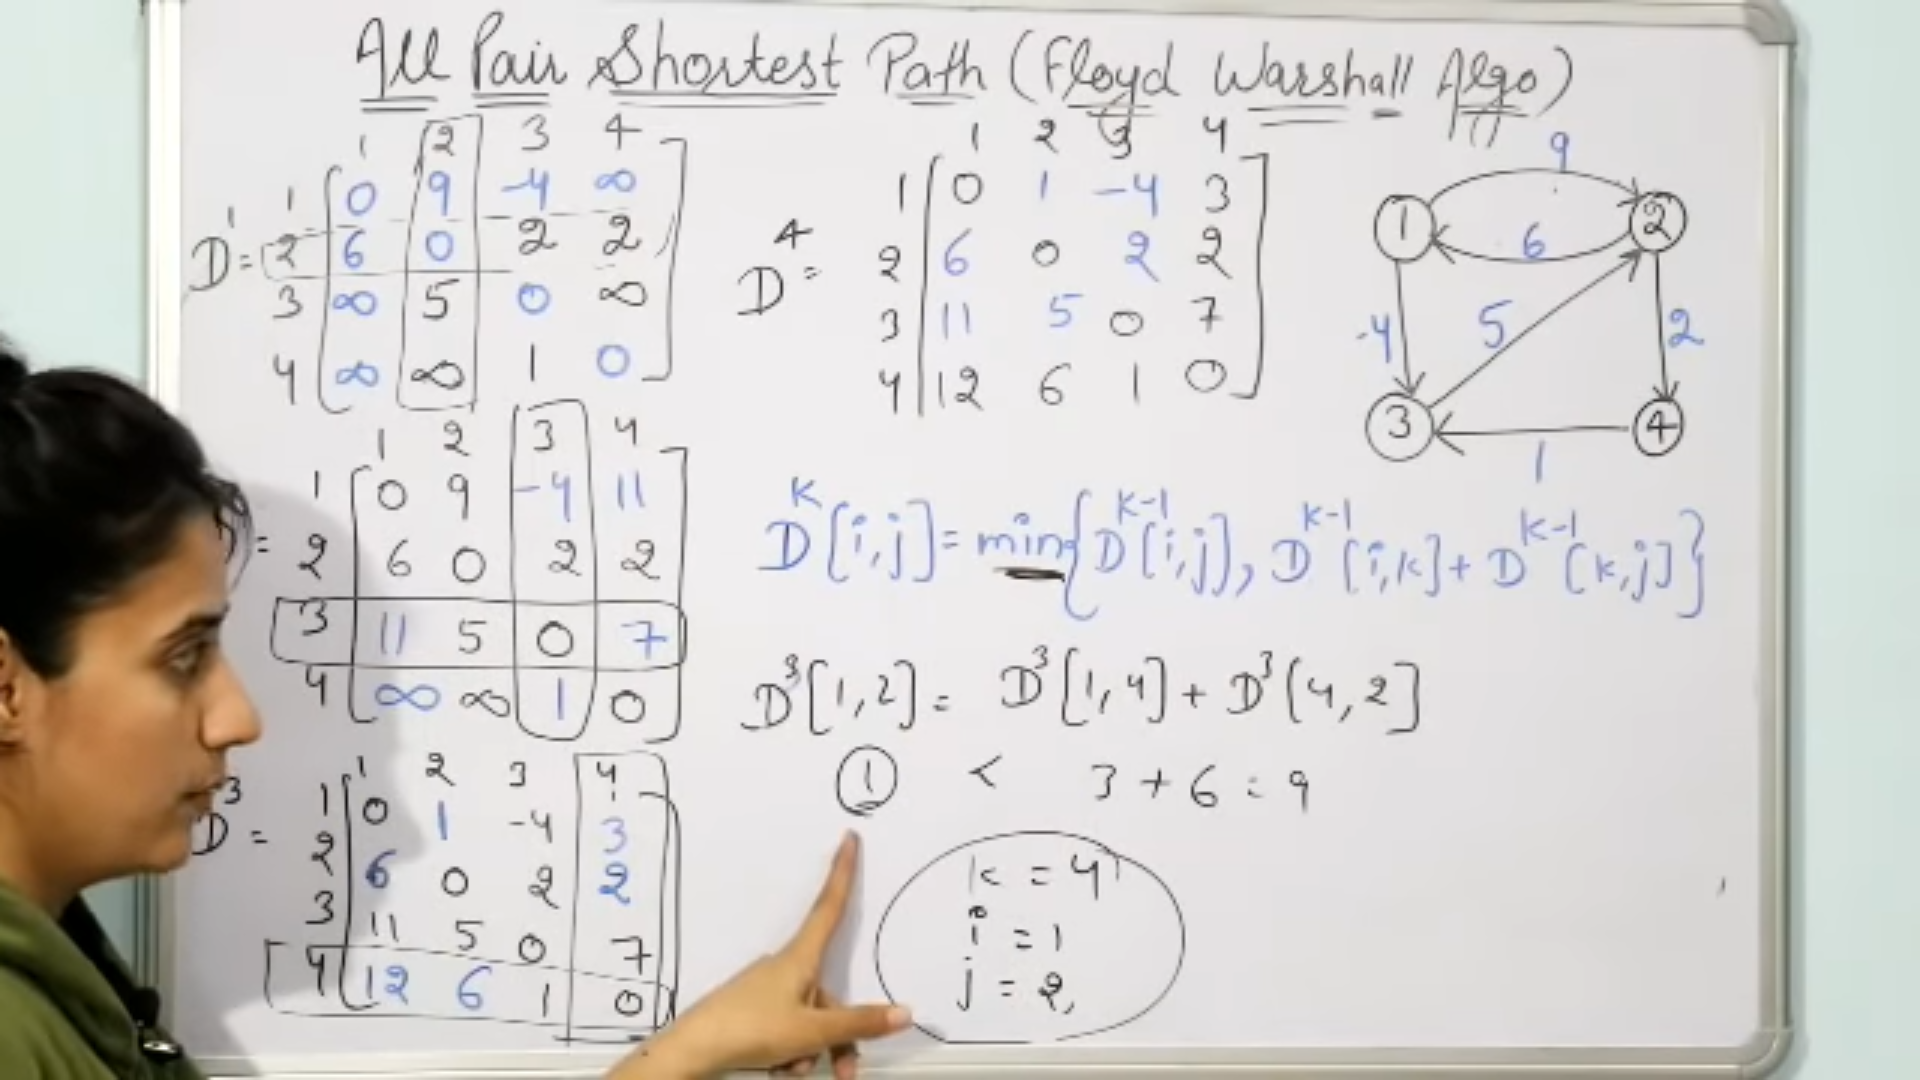 All Pair Shortest Path (Floyd Warshall Algo)
1 2 3 4
D¹= 1 0 9 -4 ∞
2 6 0 2 2
3 ∞ 5 0 ∞
4 ∞ ∞ 1 0
1 2 3 4
1 0 9 -4 11
= 2 6 0 2 2
3 11 5 0 7
4 ∞ ∞ 1 0
1 2 3 4
D³= 1 0 1 -4 3
2 6 0 2 2
3 11 5 0 7
4 12 6 1 0
1 2 3 4
D⁴= 1 0 1 -4 3
2 6 0 2 2
3 11 5 0 7
4 12 6 1 0
9
1 2
6
-4 5 2
3 4
1
Dᴷ[i,j]=min{Dᴷ⁻¹[i,j], Dᴷ⁻¹[i,k]+Dᴷ⁻¹[k,j]}
D³[1,2]= D³[1,4]+D³[4,2]
1 < 3+6=9
k=4
i=1
j=2,